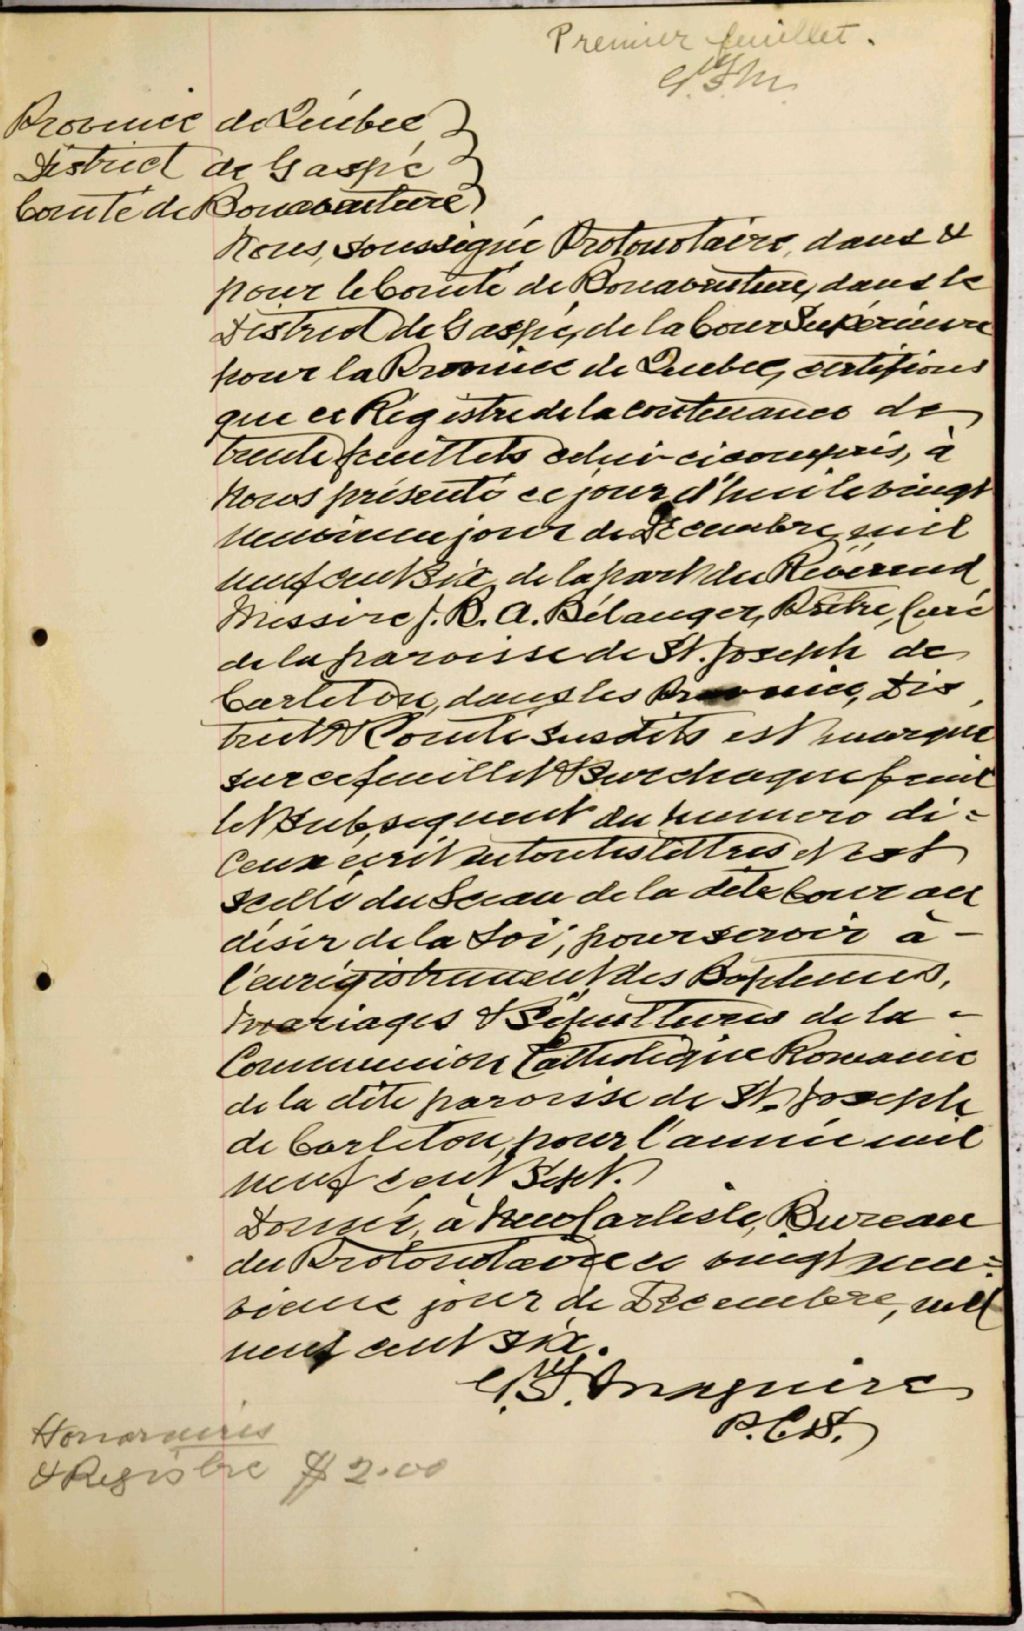 Premier feuillet.
Province de Québec
District de Gaspé
Comté de Bonaventure
Nous, soussigné Protonotaire, dans &
pour le Comté de Bonaventure, dans le
District de Gaspé, de la Cour Supérieure
pour la Province de Quebec, certifions
que ce Régistre de la contenance de
trente feuillets celui-ci compris, à
Nous présenté ce jour d'hui le vingt
neuvième jour de Décembre mil
neuf cent six, de la part du Révérend
Messire J. B. A. Bélanger, Prêtre, Curé
de la paroisse de St. Joseph de
Carleton, dans les Province, Dis
trict & Comté susdits est marqué
sur ce feuillet & sur chaque feuil
let subséquent du numero di-
ceux écrit en toutes lettres et est
scellé du Sceau de la dite Cour au
désir de la Loi, pour servoir à -
l'enrégistrement des Baptemes,
Mariages & Sépultures de la -
Communion Catholique Romaine
de la dite paroisse de St. Joseph
de Carleton, pour l'année mil
neuf cent Sept.
Donné, à New Carlisle, Bureau
du Protonotaire ce vingt neu-
vieme jour de Décembre, mil
neuf cent six.
Maguire
P.C.S.
Honoraires
& Registre $2.00